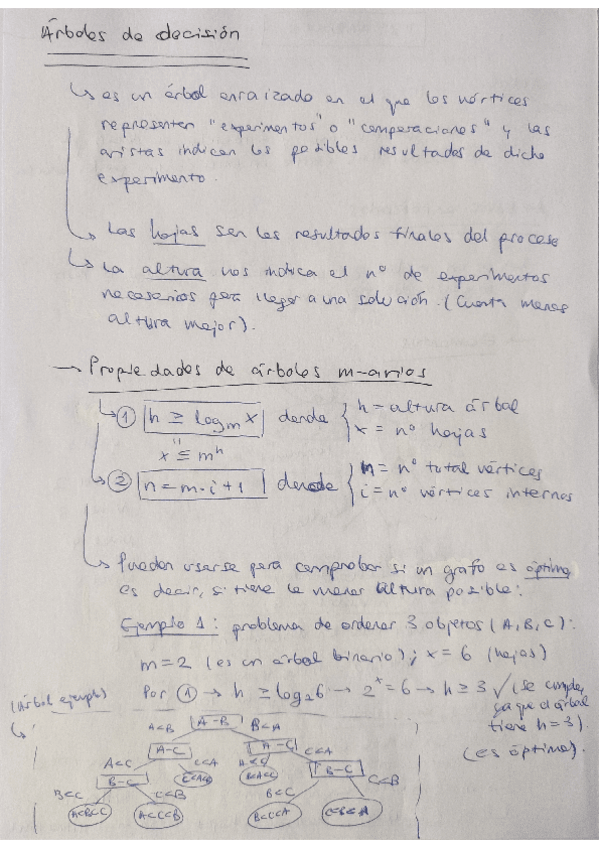 Árboles de decisión
↳ es un árbol enraizado en el que los vértices
representen "experimentos" o "comparaciones" y las
aristas indican los posibles resultados de dicho
experimento.
↳ Las hojas son los resultados finales del proceso
↳ La altura nos indica el nº de experimentos
necesarios para llegar a una solución. (Cuanta menos
altura mejor).
→ Propiedades de árboles m-arios
↳ ① h ≥ log_m x donde { h = altura árbol
x = nº hojas
x ≤ m^h
↳ ② n = m·i+1 donde { n = nº total vértices
i = nº vértices internos
↳ Pueden usarse para comprobar si un grafo es óptimo,
es decir, si tiene la menor altura posible:
Ejemplo 1: problema de ordenar 3 objetos (A,B,C):
m=2 (es un árbol binario); x = 6 (hojas)
(árbol ejemplo) Por ① → h ≥ log₂6 → 2^x = 6 → h ≥ 3 ✓ (se cumple,
ya que el árbol
tiene h=3).
(es óptimo).
A<B A-B B<A
A<C A-C C<A A<C A-C C<A
B-C C<A<B B<A<C B-C
B<C C<B B<C C<B
A<B<C A<C<B B<C<A C<B<A